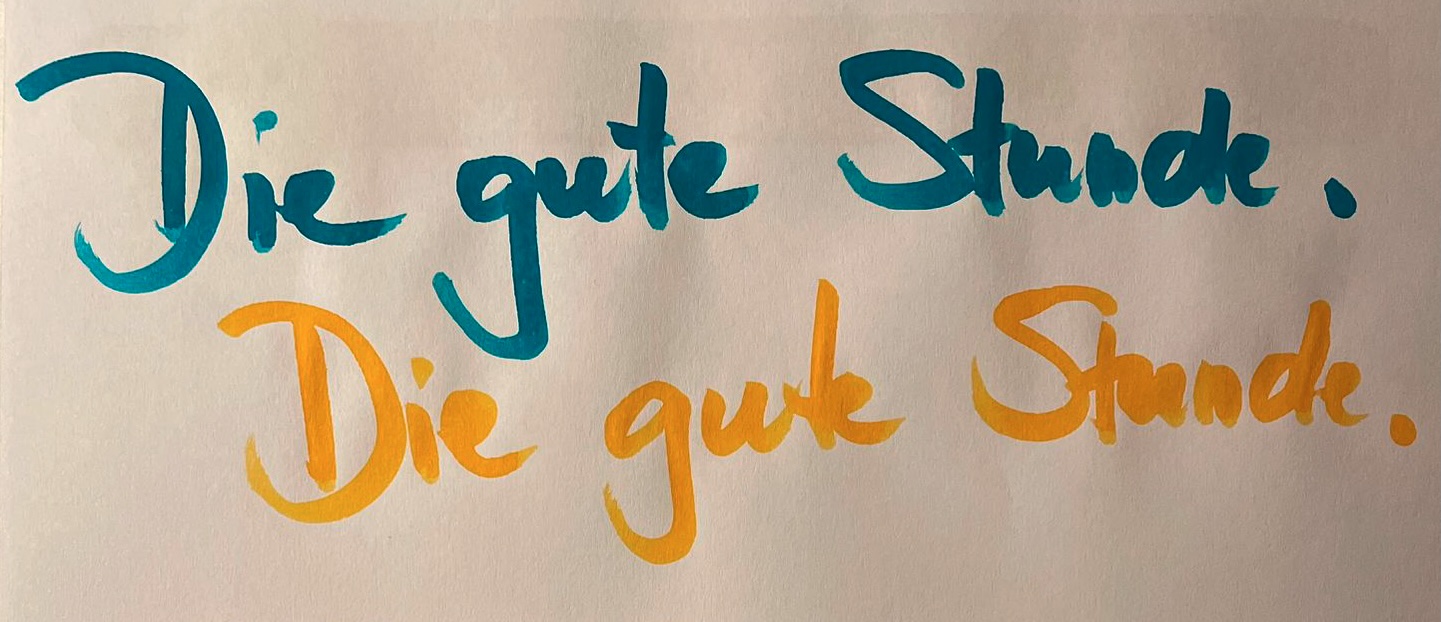 Die gute Stunde.
Die gute Stunde.